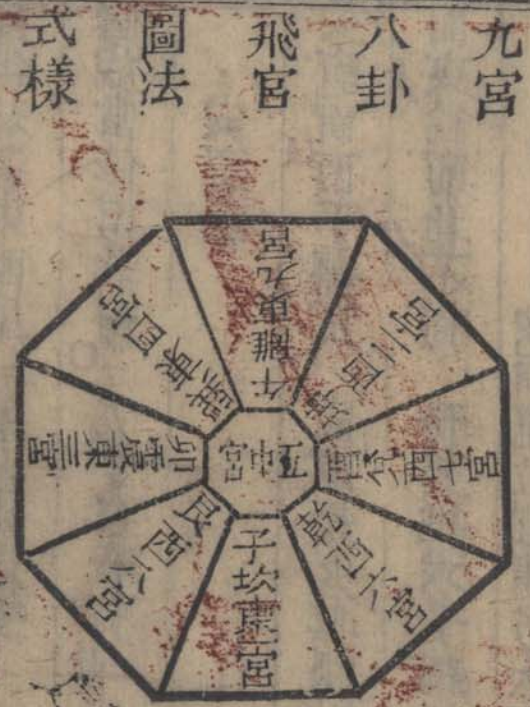 九宮
八卦
飛宮
圖法
式樣
午離東九宮
坤西二宮
酉兌西七宮
乾西六宮
子坎東一宮
艮西八宮
卯震東三宮
巽東四宮
五中宮